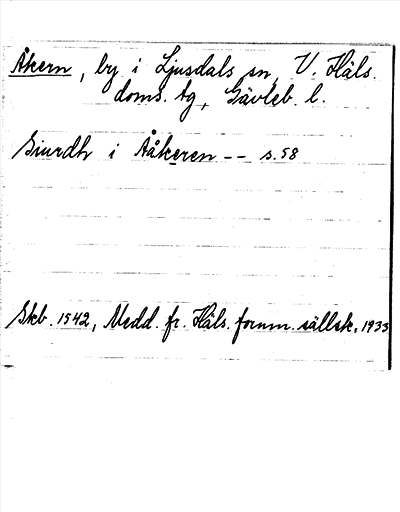 Åkern, by i Ljusdals sn, V. Häls.
doms. tg, Gävleb. l.
Siurdh i Ååkeren -- s. 58
Skb. 1542, Medd. fr. Häls. fornm. sällsk. 1935